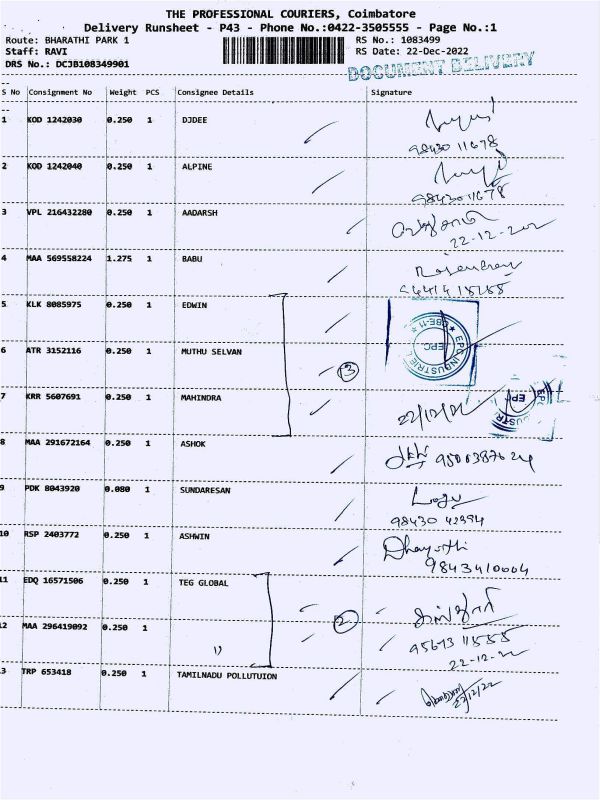 THE PROFESSIONAL COURIERS, Coimbatore
Delivery Runsheet - P43 - Phone No.:0422-3505555 - Page No.:1
Route: BHARATHI PARK 1 RS No.: 1083499
Staff: RAVI RS Date: 22-Dec-2022
DRS No.: DCJB108349901
DOCUMENT DELIVERY
S No Consignment No Weight PCS Consignee Details Signature
1 KOD 1242030 0.250 1 DJDEE
98430 11678
2 KOD 1242040 0.250 1 ALPINE
9843011678
3 VPL 216432280 0.250 1 AADARSH
22-12-202
4 MAA 569558224 1.275 1 BABU
5 KLK 8085975 0.250 1 EDWIN
EPC INDUSTRIE CBE-11 EPC
6 ATR 3152116 0.250 1 MUTHU SELVAN
3
7 KRR 5607691 0.250 1 MAHINDRA
22/12/22
EPC
8 MAA 291672164 0.250 1 ASHOK
9500387624
9 PDK 8043920 0.080 1 SUNDARESAN
Logu
98430 42394
10 RSP 2403772 0.250 1 ASHWIN
9843410004
11 EDQ 16571506 0.250 1 TEG GLOBAL
2
12 MAA 296419092 0.250 1 "
22-12-22
3 TRP 653418 0.250 1 TAMILNADU POLLUTUION
22/12/22